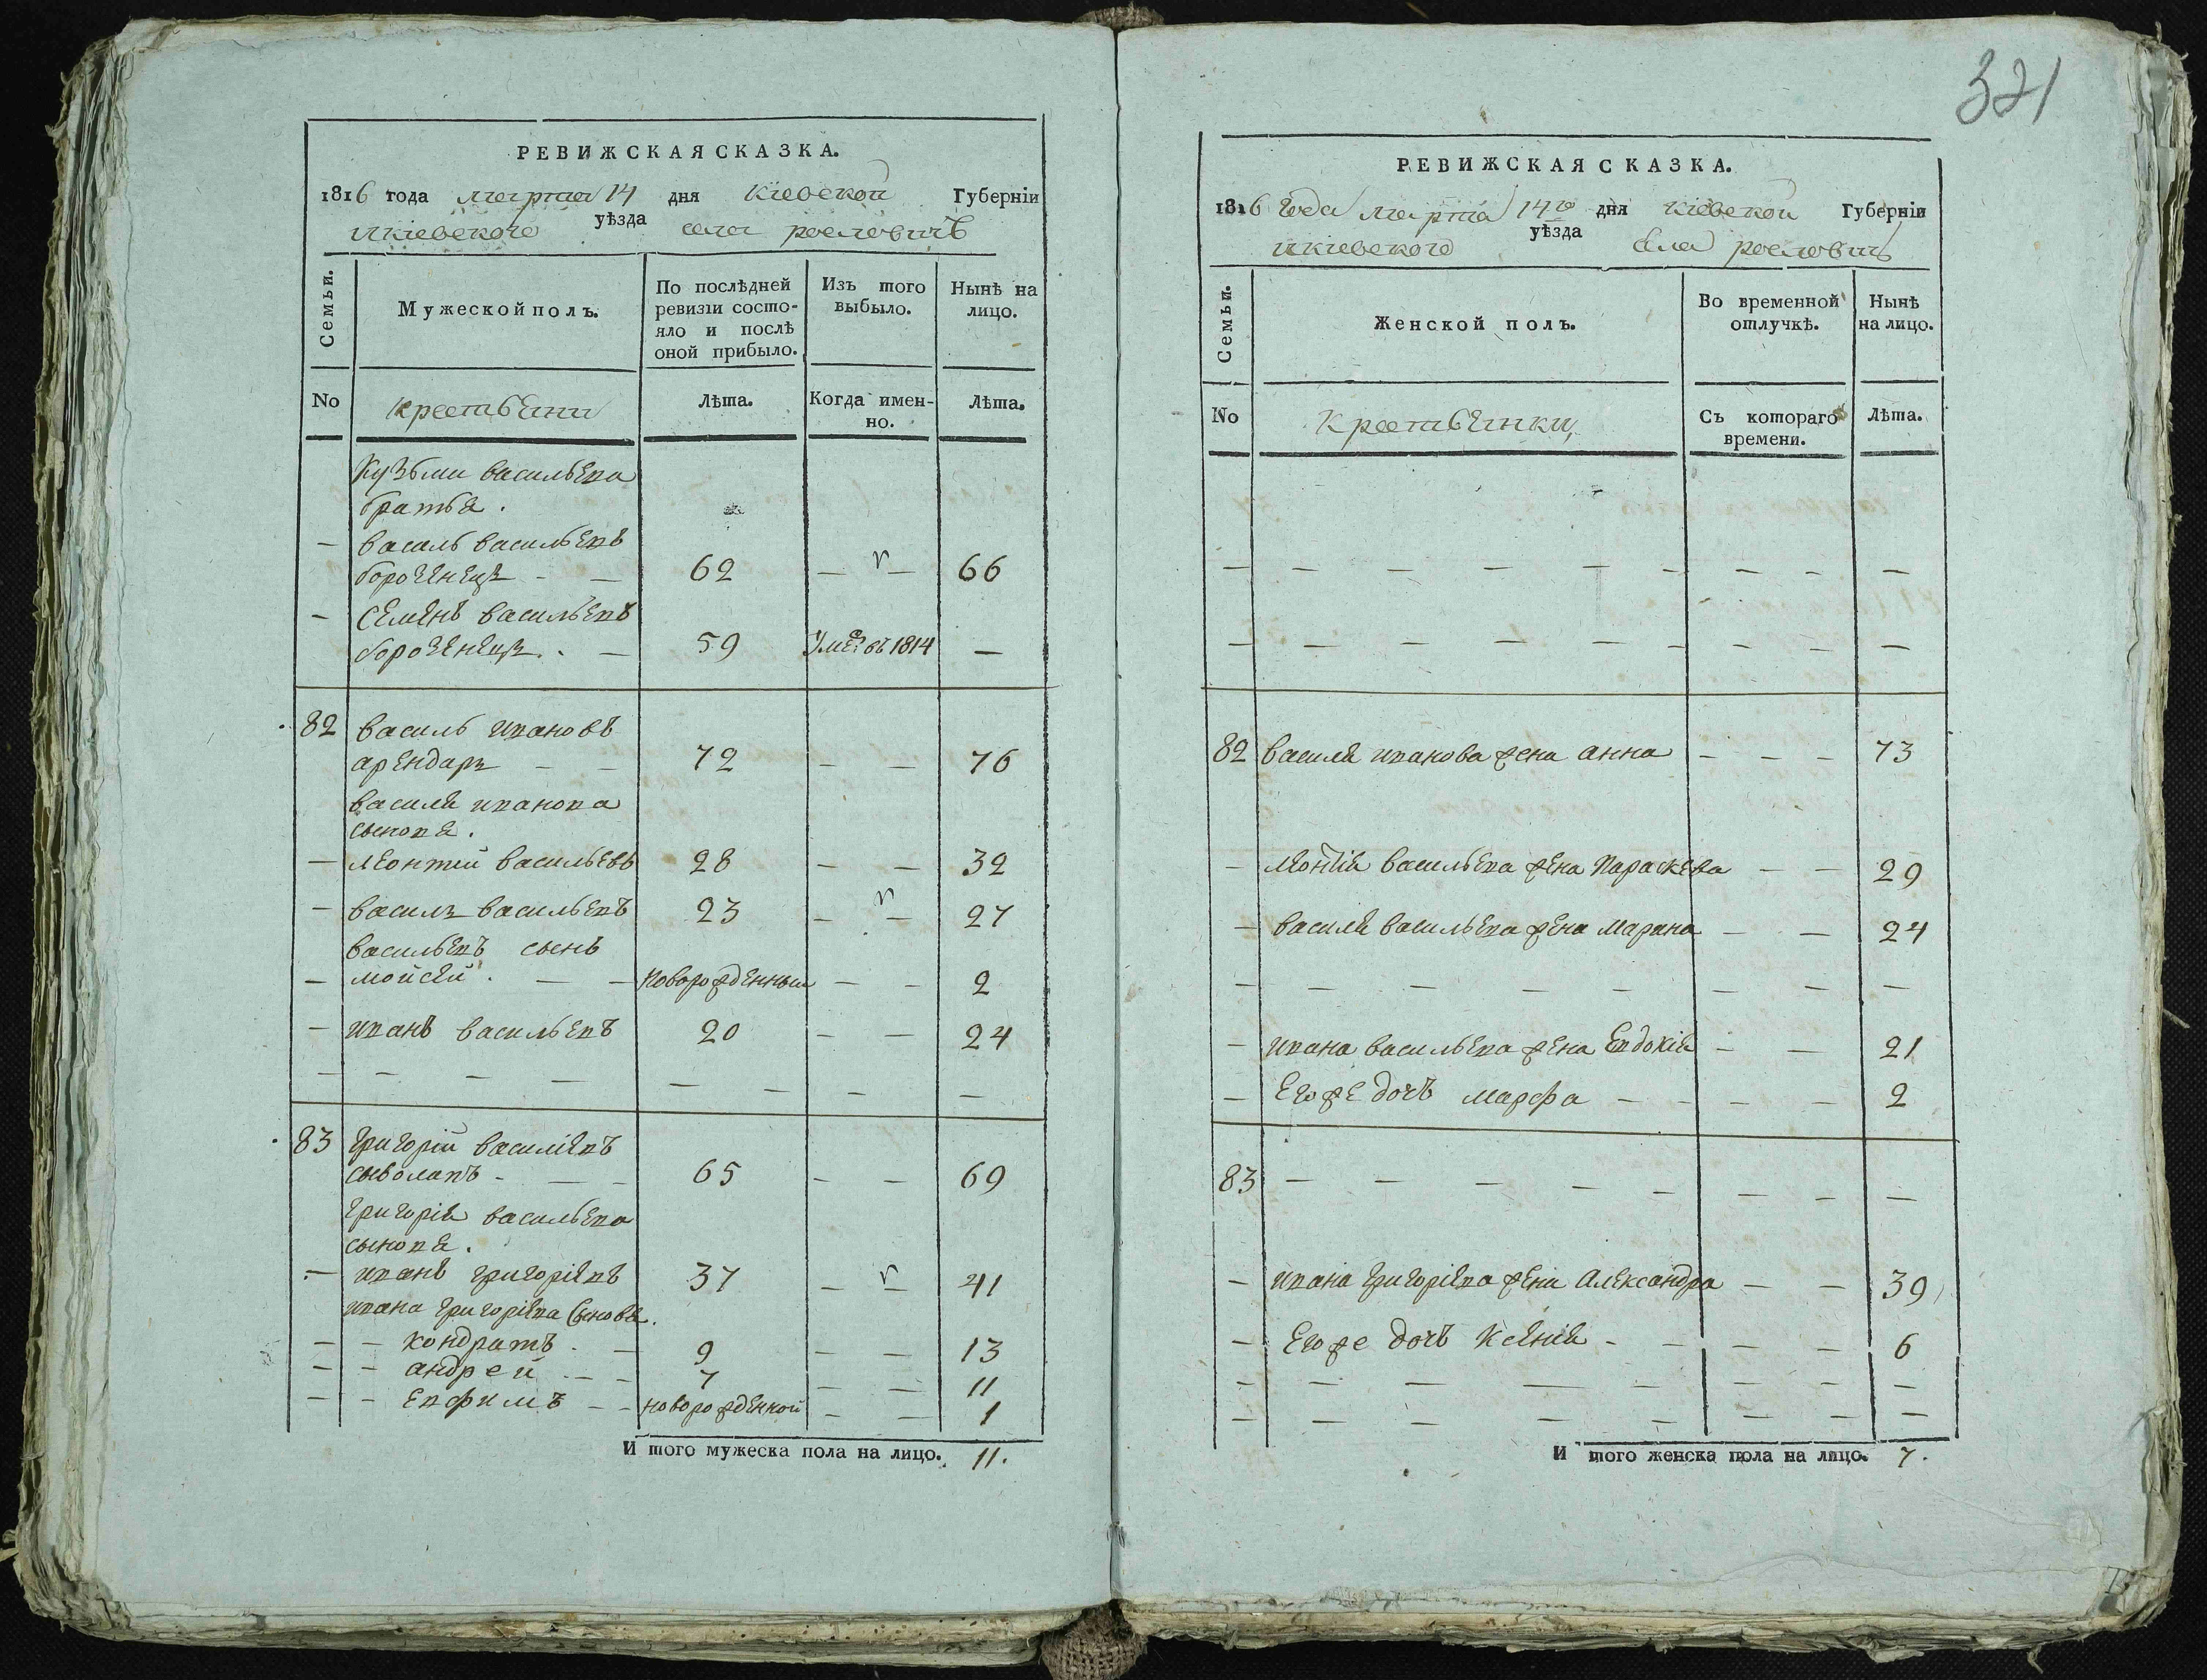 321
РЕВИЖСКАЯ СКАЗКА.
1816 года марта 14 дня Киевской Губерніи
Икиевского уѣзда села рословичъ
Семьи.
Мужеской полъ.
По послѣдней ревизіи состо-
яло и послѣ
оной прибыло.
Изъ того
выбыло.
Нынѣ на
лицо.
No
крестьяни
Лѣта.
Когда имен-
но.
Лѣта.
Кузьми васильева
братья.
— василь васильевъ
— 62 — — 66
— Семенъ васильевъ
— 59 Умѣ въ 1814 —
82 василь ивановъ
арендарь — — 72 — — 76
василя иванова
синовя.
— леонтий васильевъ 28 — — 32
— василь васильевъ 23 — — 27
васильевъ сынъ
— мойсей. — — новорожденный — — 2
— иванъ васильевъ 20 — — 24
— — — — — — — —
83 григорій василіевъ
сыволапъ - — - 65 - — 69
григорія васильева
сынова.
— иванъ григоріевъ 37 — — 41
ивана григоріева сынове.
— - кондратъ . — 9 — — 13
— - андрей — - 7 — — 11
— - Евфимъ — - новорожденной — — 1
И того мужеска пола на лицо. 11.
РЕВИЖСКАЯ СКАЗКА.
1816 года марта 14го дня киевской Губерніи
икиевского уѣзда села рословичъ
Семьи.
Женской полъ.
Во временной
отлучкѣ.
Нынѣ
на лицо.
No
Крестьянки
Съ котораго
времени.
Лѣта.
— — — — — — — — —
— — — — — — — — —
82 василя иванова жена анна — — — 73
— леонтія васильева жена Параскева — — 29
— василя васильева жена марина — — 24
— — — — — — — —
— ивана васильева жена Евдокія — — 21
— Егоже дочъ марфа — — — — 2
83 — — — — — — — —
— ивана григоріева жена Александра — — 39
— Егоже дочъ Ксенія - — — — 6
— — — — — — — —
— — — — — — — —
И того женска пола на лицо. 7.